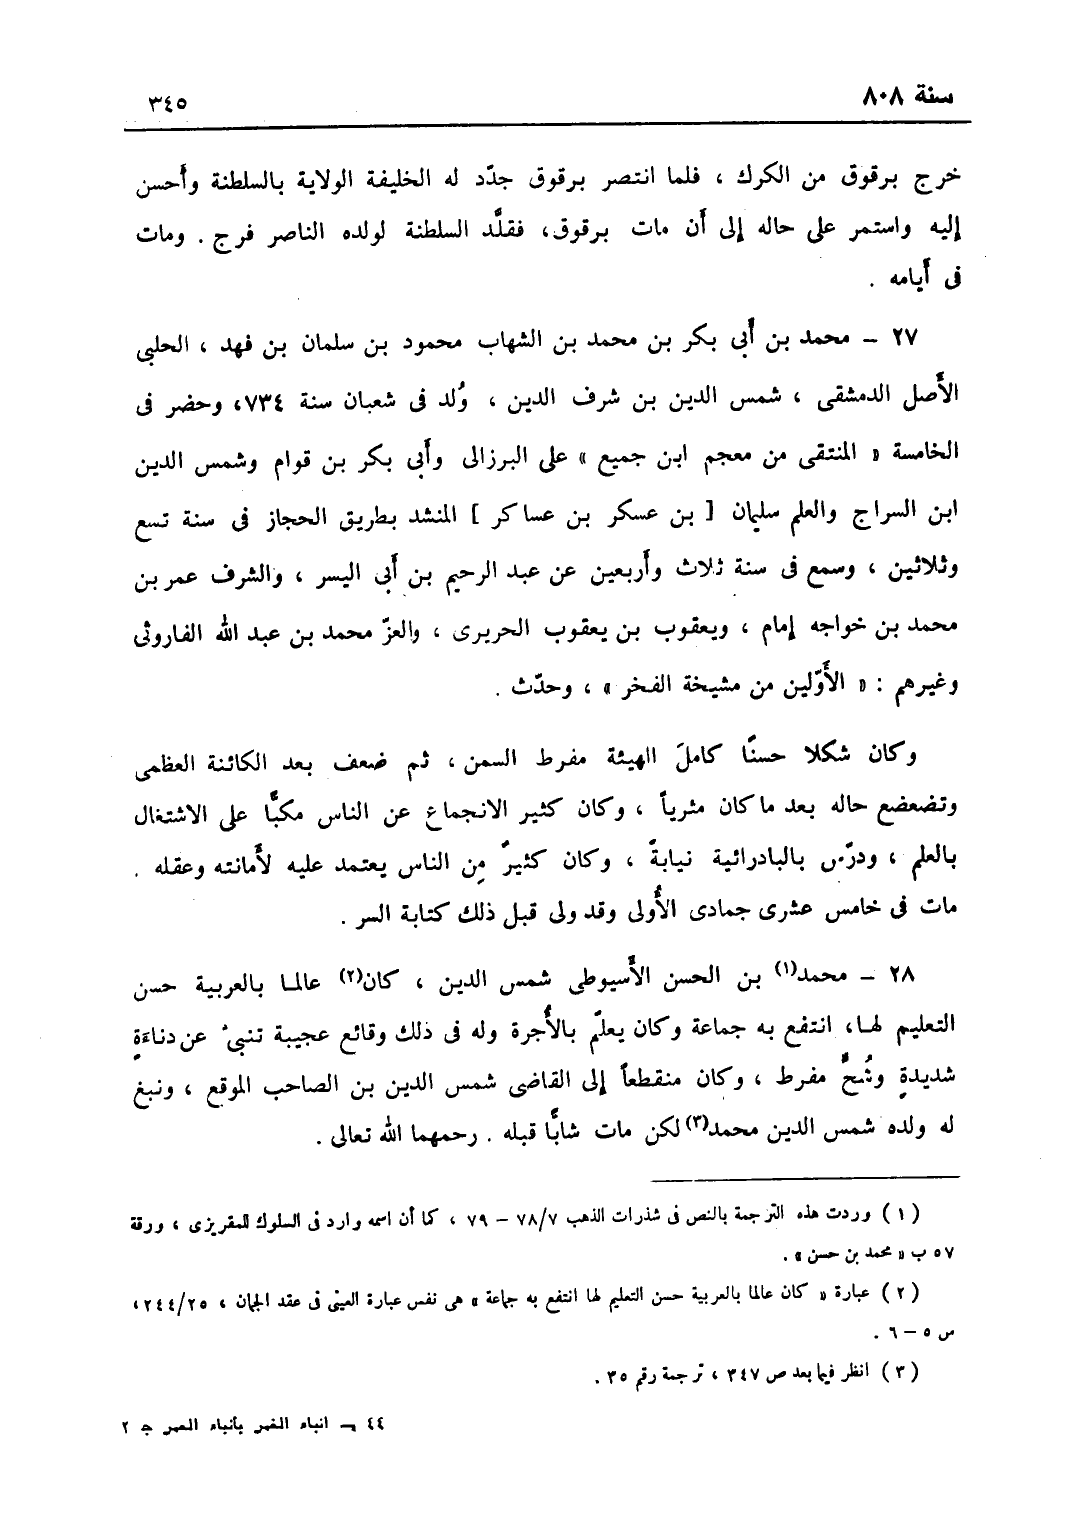 سنة ٨٠٨
٣٤٥
خرج برقوق من الكرك ، فلما انتصر برقوق جدّد له الخليفة الولاية بالسلطنة وأحسن
إليه واستمر على حاله إلى أن مات برقوق، فقلَّد السلطنة لولده الناصر فرج . ومات
فى أيامه .
٢٧ – محمد بن أبى بكر بن محمد بن الشهاب محمود بن سلمان بن فهد ، الحلبى
الأصل الدمشقى ، شمس الدين بن شرف الدين ، وُلد فى شعبان سنة ٧٣٤، وحضر فى
الخامسة « المنتقى من معجم ابن جميع » على البرزالى وأبى بكر بن قوام وشمس الدين
ابن السراج والعلم سليمان [ بن عسكر بن عساكر ] المنشد بطريق الحجاز فى سنة تسع
وثلاثين ، وسمع فى سنة ثلاث وأربعين عن عبد الرحيم بن أبى اليسر ، والشرف عمر بن
محمد بن خواجه إمام ، ويعقوب بن يعقوب الحريرى ، والعزّ محمد بن عبد الله الفاروثى
وغيرهم : « الأوّلين من مشيخة الفخر » ، وحدّث .
وكان شكلا حسنًا كاملَ الهيئة مفرط السمن ، ثم ضعف بعد الكائنة العظمى
وتضعضع حاله بعد ما كان مثرياً ، وكان كثير الانجماع عن الناس مكبًّا على الاشتغال
بالعلم ، ودرّس بالبادرائية نيابةً ، وكان كثيرٌ مِن الناس يعتمد عليه لأمانته وعقله .
مات فى خامس عشرى جمادى الأولى وقد ولى قبل ذلك كتابة السر .
٢٨ – محمد(١) بن الحسن الأسيوطى شمس الدين ، كان(٢) عالما بالعربية حسن
التعليم لها، انتفع به جماعة وكان يعلّم بالأُجرة وله فى ذلك وقائع عجيبة تنبىُ عن دناءَةٍ
شديدةٍ وشُحٍّ مفرط ، وكان منقطعاً إلى القاضى شمس الدين بن الصاحب الموقع ، ونبغ
له ولده شمس الدين محمد(٣) لكن مات شابًّا قبله . رحمهما الله تعالى .
(١) وردت هذه الترجمة بالنص فى شذرات الذهب ٧٨/٧ – ٧٩ ، كما أن اسمه وارد فى السلوك للمقريزى ، ورقة
٥٧ ب « محمد بن حسن » .
(٢) عبارة « كان عالما بالعربية حسن التعليم لها انتفع به جماعة » هى نفس عبارة العينى فى عقد الجمان ، ٢٤٤/٢٥،
س ٥ – ٦ .
(٣) انظر فيما بعد ص ٣٤٧ ، ترجمة رقم ٣٥ .
٤٤ – انباء الغمر بأنباء العمر ج ٢